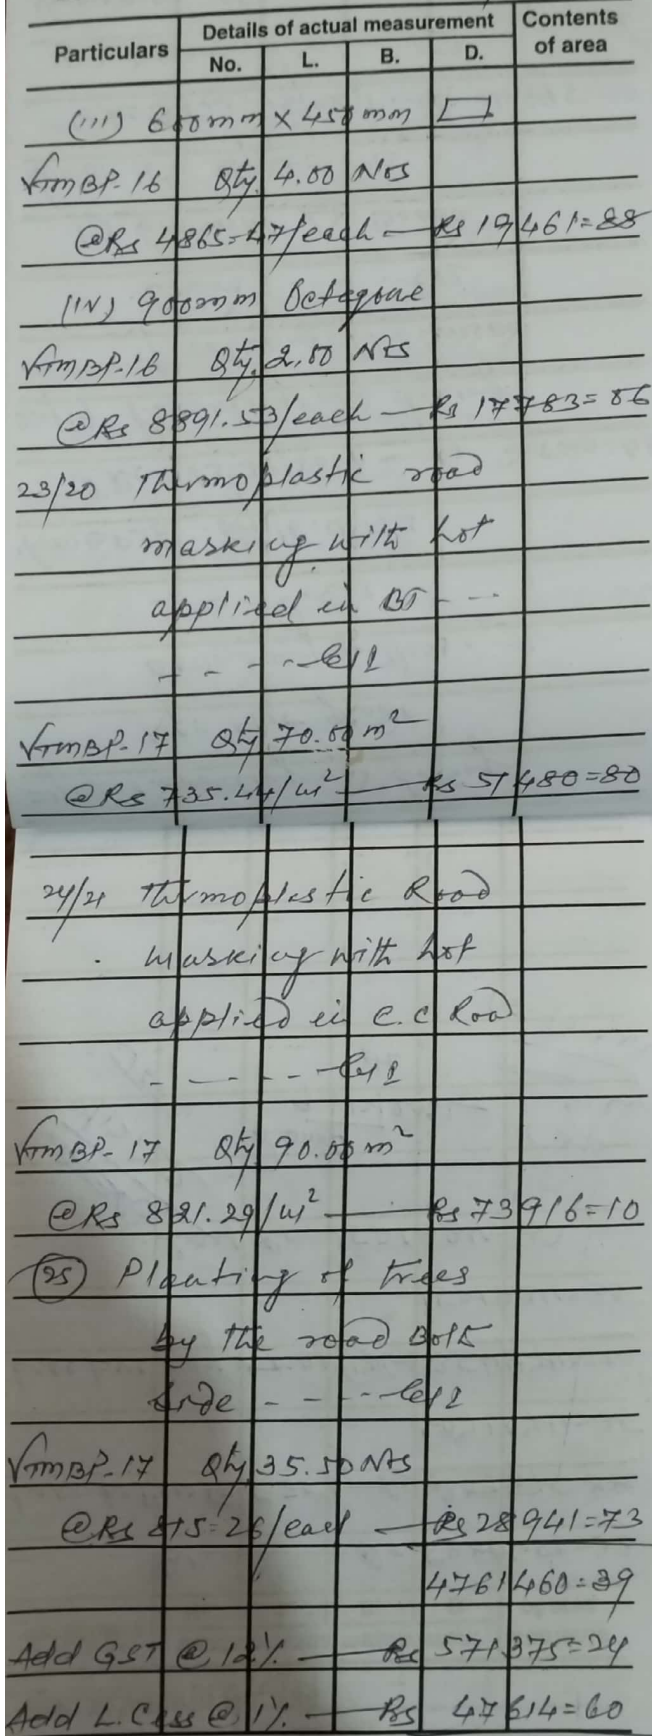 Particulars Details of actual measurement Contents of area
No. L. B. D.
(iii) 600mm x 450mm
VTMBP-16 Qty. 4.00 Nos
@Rs 4865=47/each — Rs 19461=88
(IV) 900mm Octagone
VTMBP-16 Qty. 2.00 Nos
@Rs 8891.53/each — Rs 17783=06
23/20 Thermoplastic road
masking with hot
applied in BT - - -
- - - -
VTMBP-17 Qty 70.00 m²
@Rs 735.44/m² — Rs 51480=80
24/21 Thermoplastic Road
masking with hot
applied in C.C Road
- - - - -
VTMBP-17 Qty 90.00 m²
@Rs 821.29/m² — Rs 73916=10
(25) Planting of trees
by the road Both
side - - - -
VTMBP-17 Qty 35.50 Nos
@Rs 815=26/each — Rs 28941=73
4761460=39
Add GST @ 12% — Rs 571375=24
Add L. Cess @ 1% — Rs 47614=60